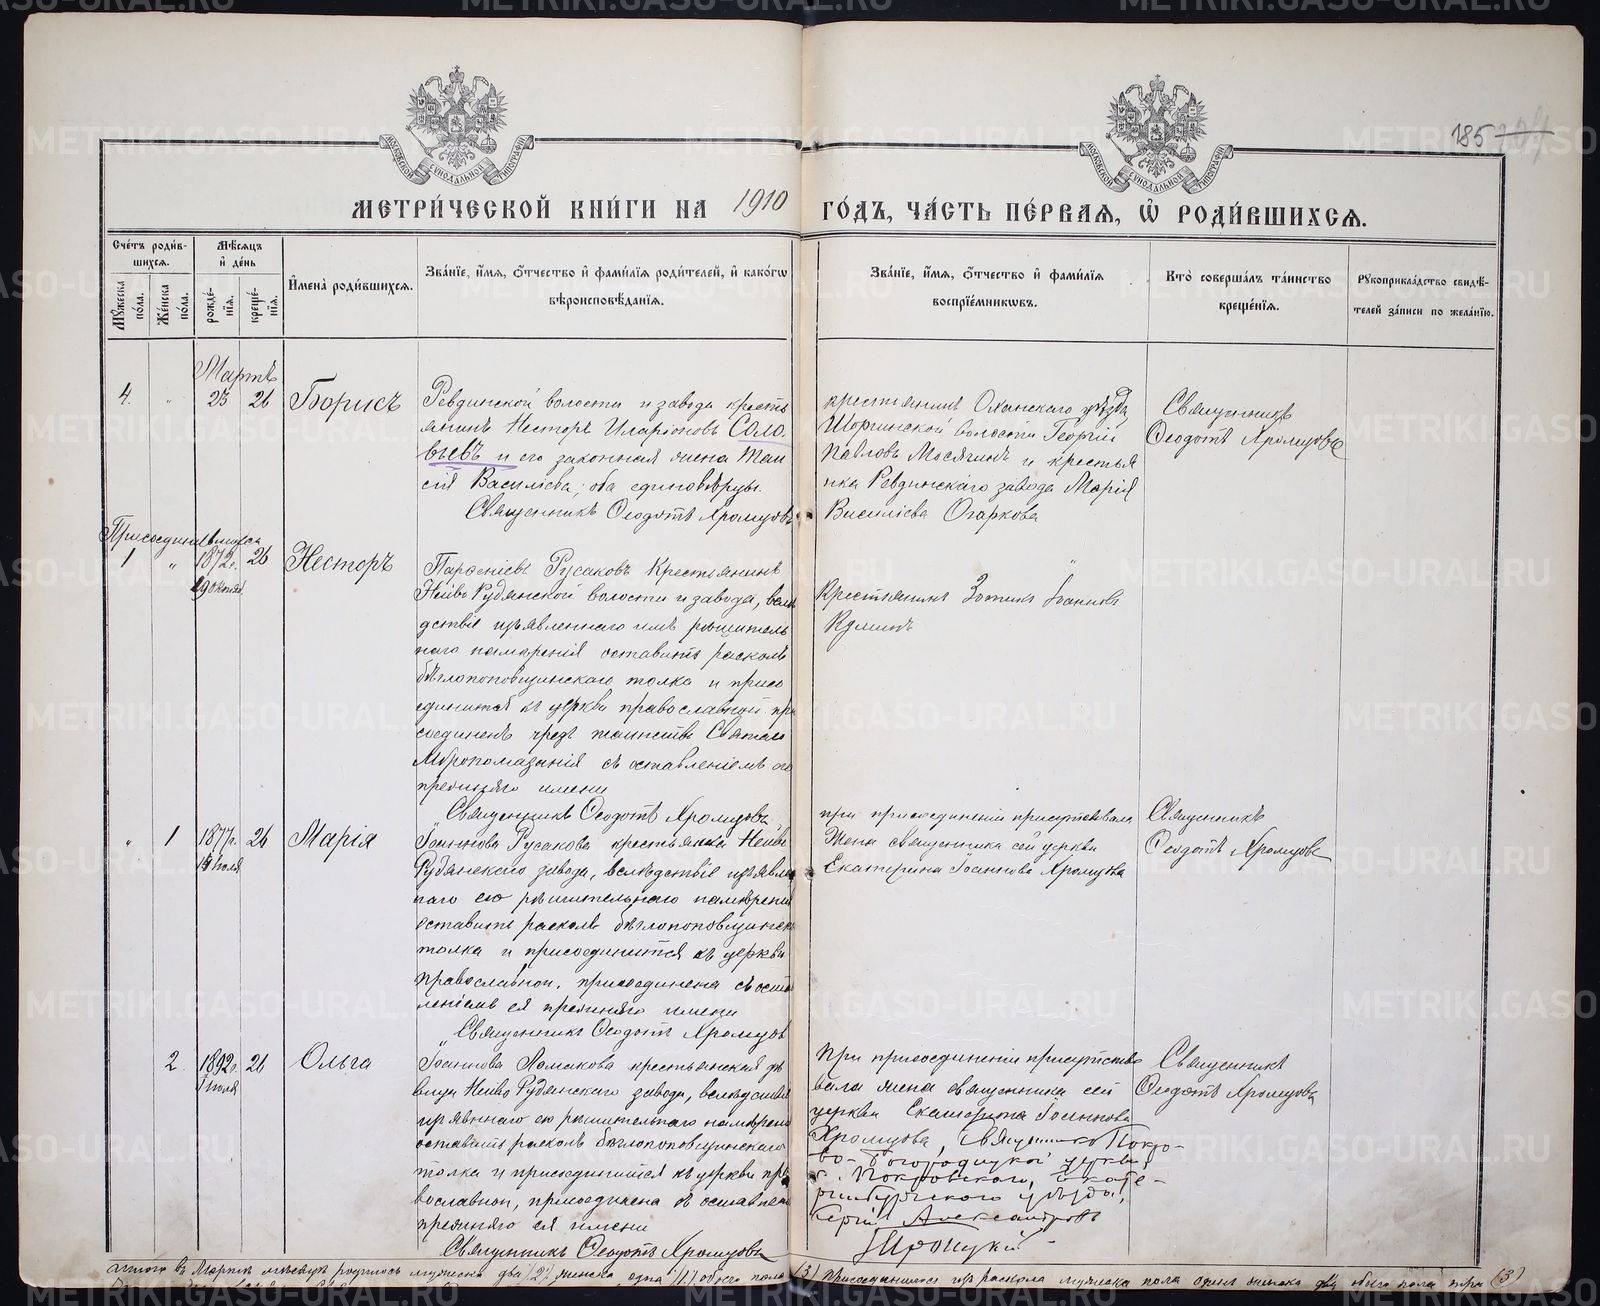 185
МОСКОВСКОЙ СѴНОДАЛЬНОЙ ТИПОГРАФІИ
МОСКОВСКОЙ СѴНОДАЛЬНОЙ ТИПОГРАФІИ
МЕТРИ́ЧЕСКОЙ КНИ́ГИ НА 1910 ГО́ДЪ, ЧА́СТЬ ПЕ́РВАѦ, Ѡ҆ РОДИ́ВШИХСѦ.
Сче́тъ роди́в-
шихсѧ.
Мꙋ́жеска по́ла.
Же́нска по́ла.
Мѣ́сѧцъ
и҆ де́нь
рожде́-нїѧ.
креще́-нїѧ.
И҆мена̀ роди́вшихсѧ.
Зва́нїе, и҆́мѧ, ѻ҆́тчество и҆ фами́лїѧ роди́телей, и҆ како́гѡ
вѣроисповѣ́данїѧ.
Зва́нїе, и҆́мѧ, ѻ҆́тчество и҆ фами́лїѧ
воспрїе́мникѡвъ.
Кто̀ соверша́лъ та́инство
креще́нїѧ.
Рꙋкоприкла́дство свидѣ́-
телей за́писи по жела́нїю.
Мартъ
4. " 23 26 Борисъ
Ревдинской волости и завода кресть
янинъ Несторъ Иларіоновъ Соло
вьевъ и его законная жена Таи
сія Васильева; оба единовѣрцы.
Священникъ Ѳеодотъ Хромцовъ
крестьянинъ Оханскаго уѣзда
волости Георгій
Павловъ Мосягинъ и крестья
нка Ревдинскаго завода Марія
Васильева Огаркова
Священникъ
Ѳеодотъ Хромцовъ
Присоединившіеся
1 " 1872 г. 26 Несторъ
29 октяб.
Парѳеніевъ Русаковъ Крестьянинъ
Нейво Рудянской волости и завода, всле
дствіе изъявленнаго имъ рѣшитель
наго намѣренія оставить расколъ
бѣглопоповщинскаго толка и присо
единится къ церкви православной при
соединенъ чрезъ таинство Святаго
Мѵропомазанія съ оставленіемъ его
прежняго имени
Священникъ Ѳеодотъ Хромцовъ
Крестьянинъ Зотикъ Іоанновъ
" 1 1877 г. 26 Марія
іюля
Іоаннова Русакова крестьянка Нейво
Рудянскаго завода, вслѣдствіе изъявлен
наго ею рѣшительнаго намѣренія
оставить расколъ бѣглопоповщинскаго
толка и присоединится къ церкви
православной, присоединена съ остав
леніемъ ея прежняго имени
Священникъ Ѳеодотъ Хромцов
при присоединеніи присутствовала
Жена священника сей церкви
Екатерина Іоаннова Хромцова
Священникъ
Ѳеодотъ Хромцовъ
2. 1892 г. 26 Ольга
іюля
Іоаннова крестьянская дѣ
вица Нейво Рудянскаго завода, вслѣдствіе
изъявннаго ею рѣшительнаго намѣренія
оставить расколъ бѣглопоповщинскаго
толка и присоединится къ церкви пра
вославной, присоединена съ оставлен
прежняго ея имени
Священникъ Ѳеодотъ Хромцовъ
При присоединеніи присутство
вала жена священника сей
церкви Екатерина Іоаннова
Хромцова, Священникъ Покро-
во-Богородицкой церкви
с. Покровскаго, Екате-
ринбургскаго уѣзда,
Сергій Александровъ
Троицкій
Итого въ Мартѣ мѣсяцѣ родилось мужеска два /2/ женска одна /1/ обоего пола (3) присоединилось изъ раскола мужеска пола одинъ женска два обоего пола три (3)
METRIKI.GASO-URAL.RU